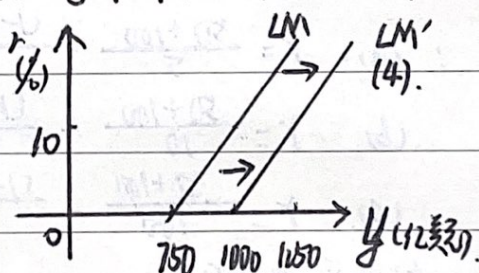 r
(%)
LM
LM'
(4).
10
0
750
1000
1250
y(亿美元).